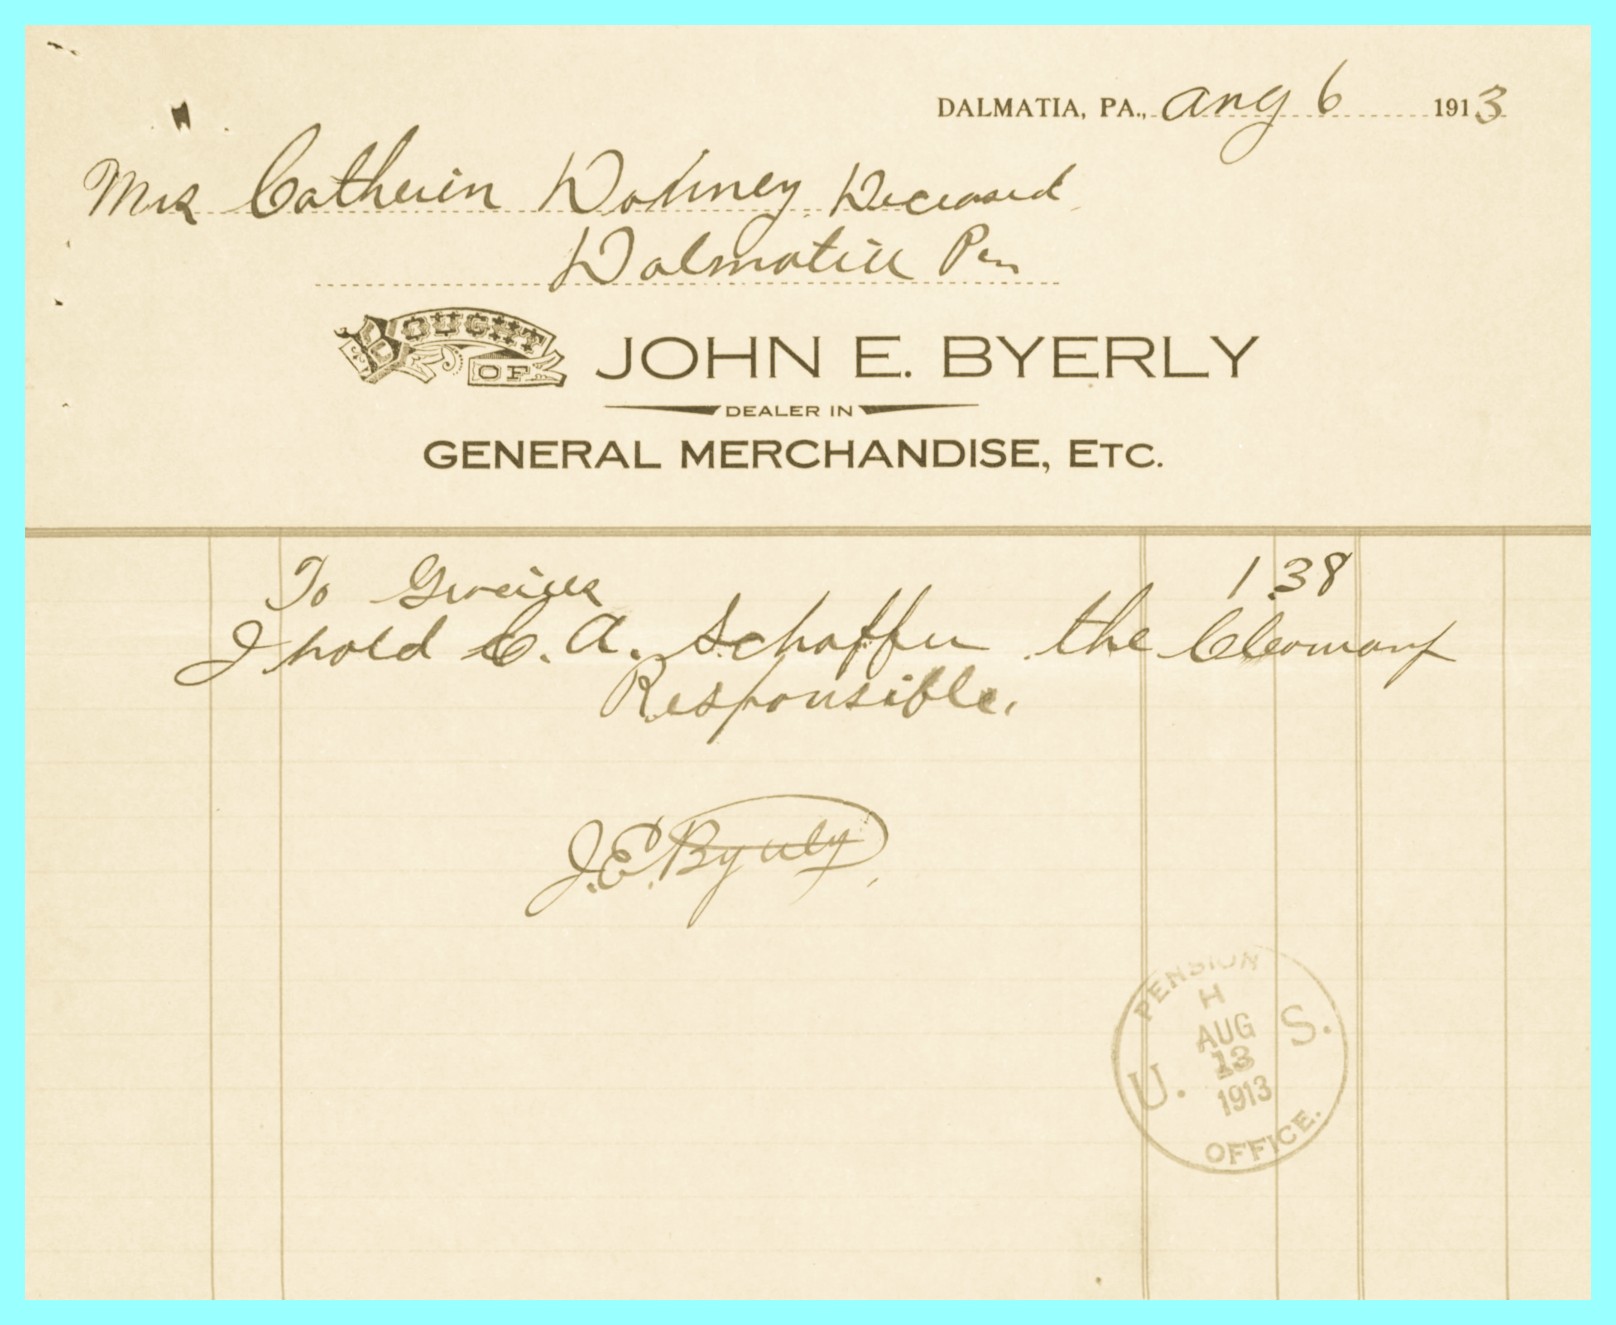 DALMATIA, PA., Aug 6 1913
Mrs Catherin Deceased
Dalmatia Pen
BOUGHT OF JOHN E. BYERLY
DEALER IN
GENERAL MERCHANDISE, ETC.
To 1.38
I hold C. A. Schaffer the
Responsible.
J.E. Byerly
PENSION
H
AUG
13
1913
U. S.
OFFICE.